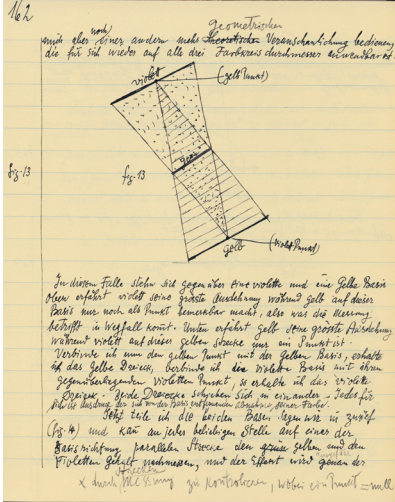 162
geometrischen
mich aber noch einer andern mehr theoretische Veranschaulichung bedienen,
die für sich wieder auf alle drei Farbkreisdurchmesser anwendbar ist.
violett
(gelb Punkt)
grau
fig. 13
fig. 13
gelb
(violet Punkt)
In diesem Falle stehn sich gegenüber eine violette und eine Gelbe Basis
oben erfährt violett seine grösste Ausdehnung während gelb auf dieser
Basis nur noch als Punkt bemerkbar macht, also was die Messung
betrifft in Wegfall komt. Unten erfährt gelb seine grösste Ausdehnung
während violett auf dieser gelben Strecke nur ein Punkt ist.
Verbinde ich nun den gelben Punkt mit der Gelben Basis, erhalte
ich das gelbe Dreieck, verbinde ich die violette Basis mit ihrem
gegenüberliegenden violetten Punkt, so erhalte ich das violette
Dreieck. Beide Dreiecke schieben sich in einander. Jedes für
sich ist Ausdruck der sich von der Basis entfernenden Abnahme seiner Farbe.
Jetzt teile ich die beiden Basen
(fig. 4) und kan an jeder beliebigen Stelle auf einer der
Basisrichtung parallelen Strecke den gelben und den
violetten Gehalt, und der Effect wird genau der
x durch Messung zu kontrolieren, wobei ein Punkt = null